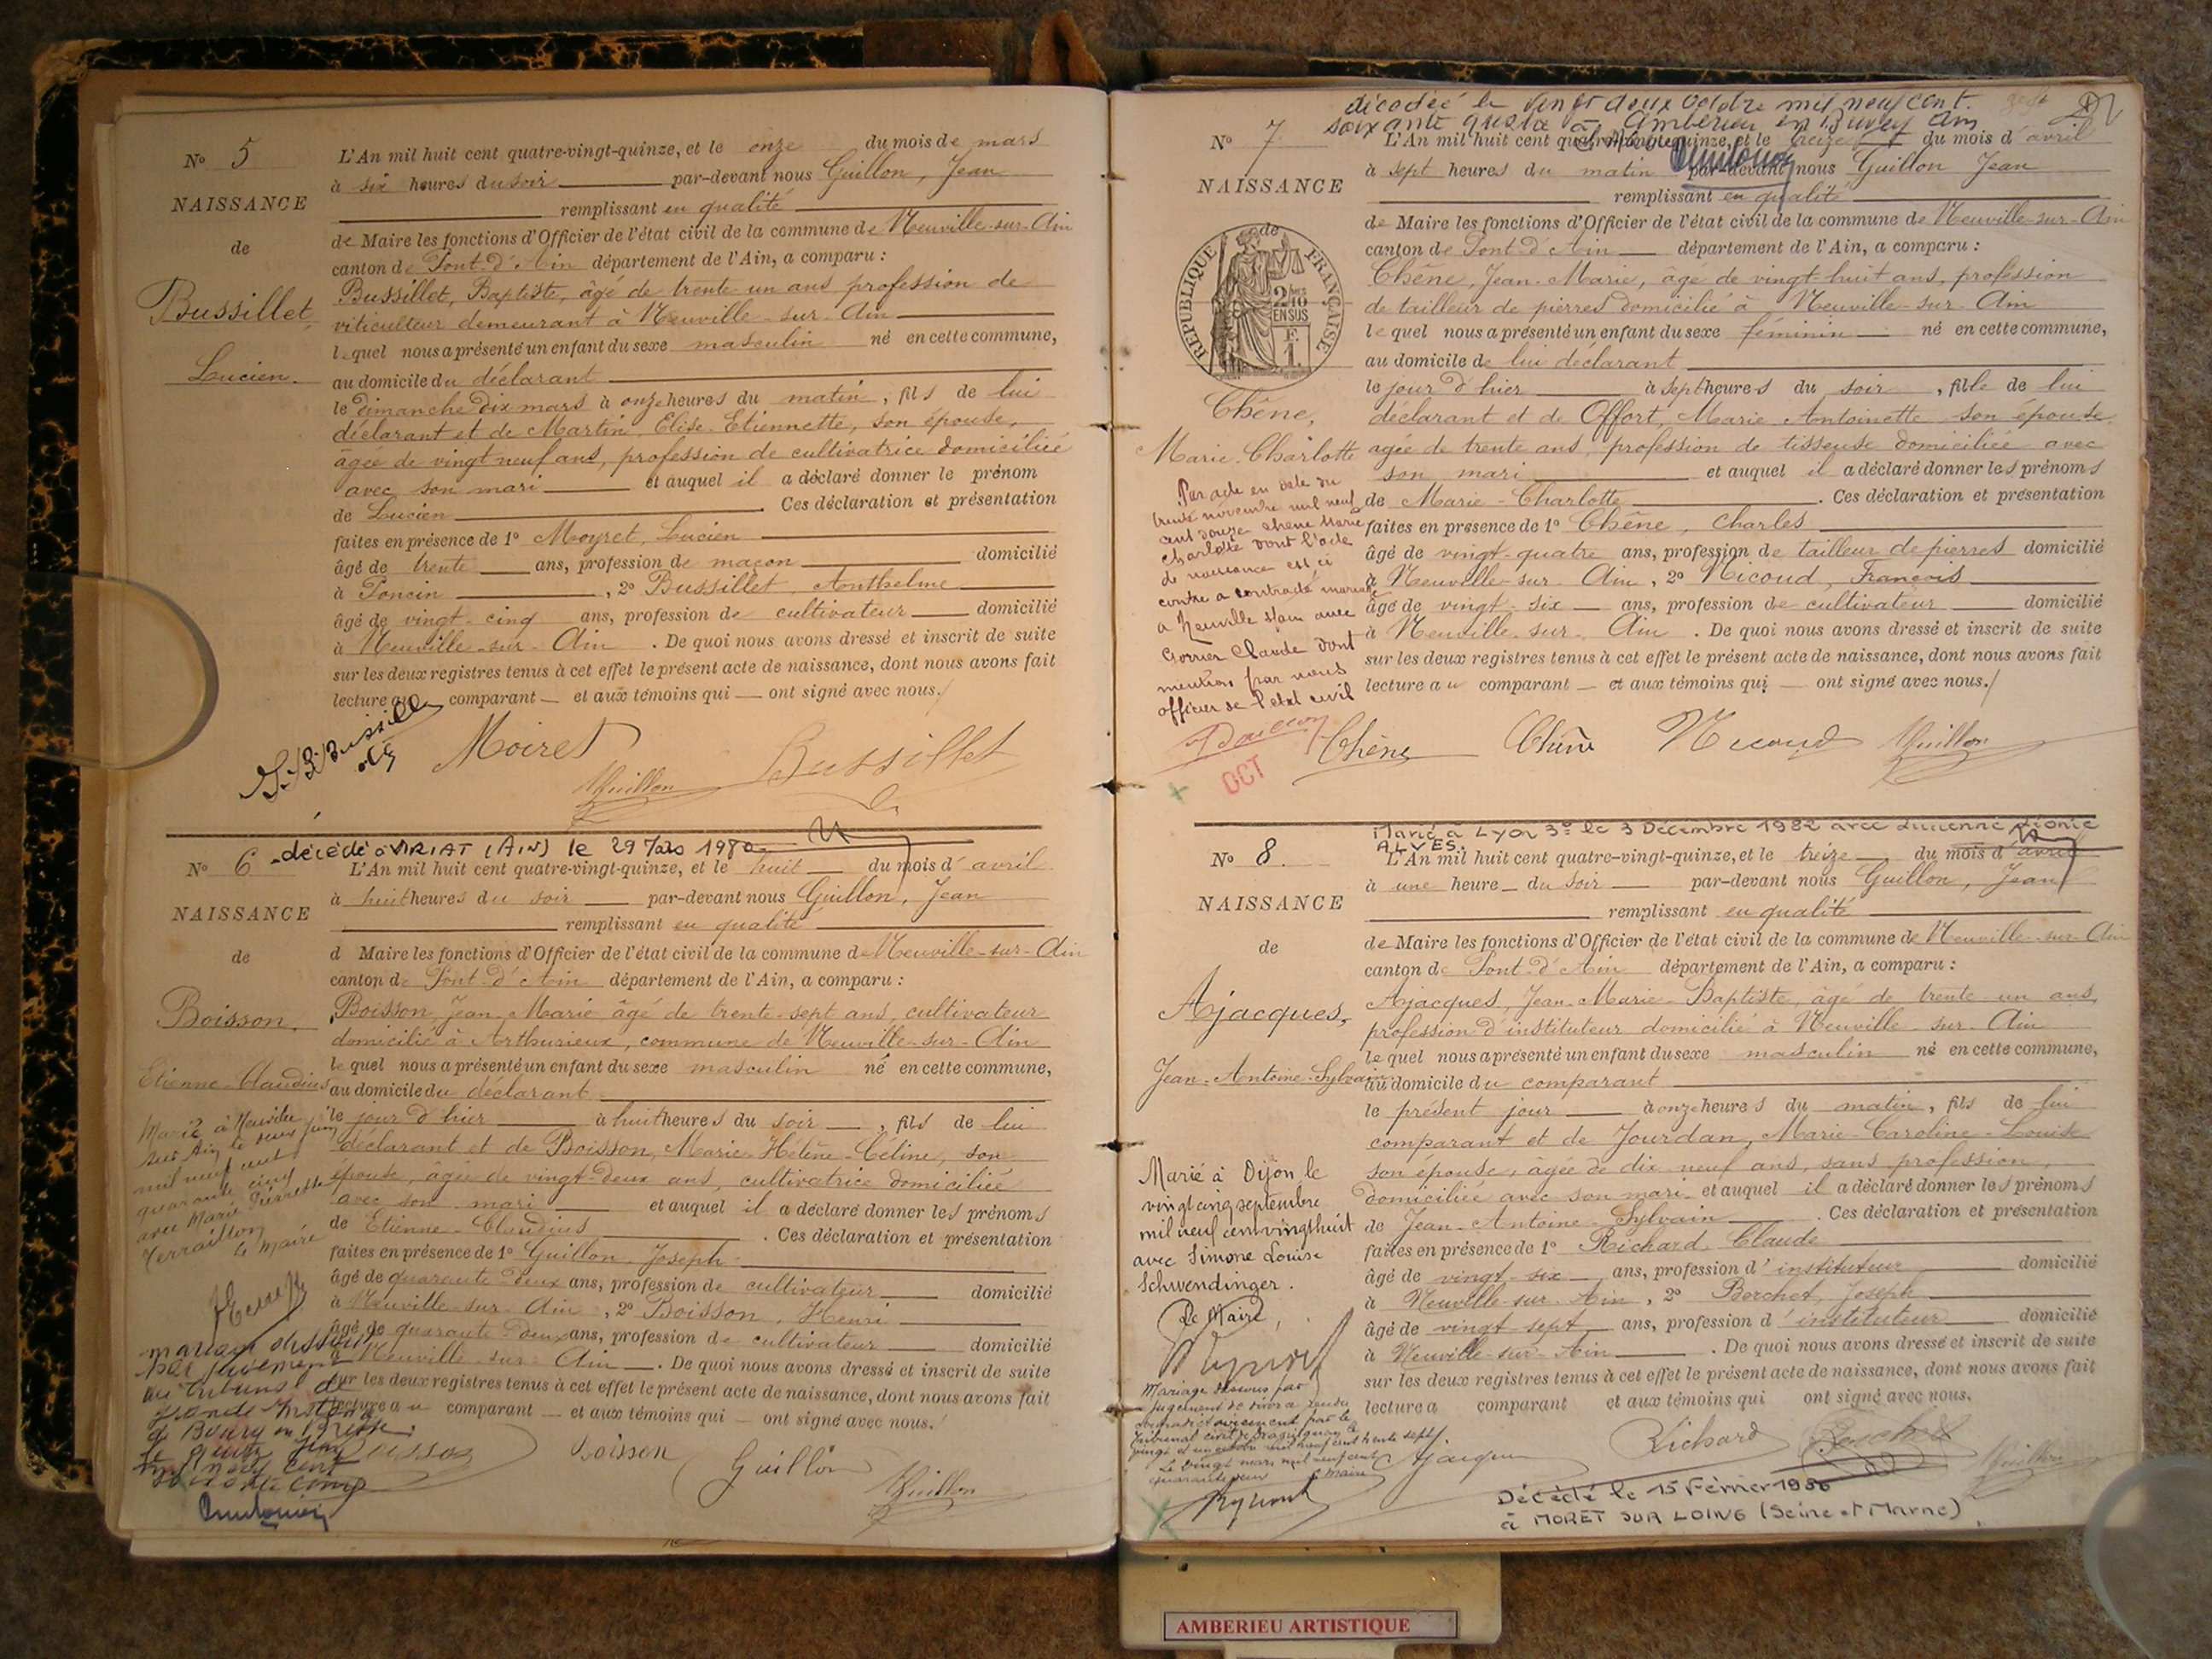 N° 5
NAISSANCE
de
Bussillet,
Lucien.
L'An mil huit cent quatre-vingt-quinze, et le onze du mois de mars
à six heures du soir par-devant nous Guillon, Jean
remplissant en qualité
de Maire les fonctions d'Officier de l'état civil de la commune de Neuville-sur-Ain
canton de Pont-d'Ain département de l'Ain, a comparu :
Bussillet, Baptiste, âgé de trente un ans profession de
viticulteur demeurant à Neuville-sur-Ain
lequel nous a présenté un enfant du sexe masculin né en cette commune,
au domicile du déclarant
le dimanche dix mars à onze heures du matin, fils de lui
déclarant et de Martin, Elise Etiennette, son épouse,
âgée de vingt neuf ans, profession de cultivatrice domiciliée
avec son mari et auquel il a déclaré donner le prénom
de Lucien. Ces déclaration et présentation
faites en présence de 1° Moyret, Lucien
âgé de trente ans, profession de maçon domicilié
à Poncin, 2° Bussillet, Anthelme
âgé de vingt-cinq ans, profession de cultivateur domicilié
à Neuville-sur-Ain. De quoi nous avons dressé et inscrit de suite
sur les deux registres tenus à cet effet le présent acte de naissance, dont nous avons fait
lecture au comparant et aux témoins qui ont signé avec nous.
Moiret
Bussillet
Guillon
décédé à VIRIAT (AIN) le 29 Mars 1980
N° 6
NAISSANCE
de
Boisson,
Etienne-Claudius
L'An mil huit cent quatre-vingt-quinze, et le huit du mois d'avril
à huit heures du soir par-devant nous Guillon, Jean
remplissant en qualité
d Maire les fonctions d'Officier de l'état civil de la commune de Neuville-sur-Ain
canton de Pont-d'Ain département de l'Ain, a comparu :
Boisson, Jean-Marie âgé de trente-sept ans, cultivateur
domicilié à Arthurieux, commune de Neuville-sur-Ain
lequel nous a présenté un enfant du sexe masculin né en cette commune,
au domicile du déclarant
le jour d'hier à huit heures du soir, fils de lui
déclarant et de Boisson, Marie-Hélène-Céline, son
épouse, âgée de vingt-deux ans, cultivatrice domiciliée
avec son mari et auquel il a déclaré donner les prénoms
de Etienne-Claudius. Ces déclaration et présentation
faites en présence de 1° Guillon, Joseph
âgé de quarante deux ans, profession de cultivateur domicilié
à Neuville-sur-Ain, 2° Boisson, Henri
âgé de quarante deux ans, profession de cultivateur domicilié
à Neuville-sur-Ain. De quoi nous avons dressé et inscrit de suite
sur les deux registres tenus à cet effet le présent acte de naissance, dont nous avons fait
lecture au comparant et aux témoins qui ont signé avec nous.
Marié à Neuville
sur Ain le deux juin
mil neuf cent
quarante cinq
avec Marie Pierrette
Terraillon
Le Maire
mariage dissous
par jugement
du tribunal de
grande instance
de Bourg en Bresse
Boisson
Guillon
Guillon
décédée le vingt deux octobre mil neuf cent
soixante quatre à Ambérieu en Bugey Ain
N° 7
NAISSANCE
REPUBLIQUE FRANÇAISE
2/10 EN SUS
F. 1.
Chêne,
Marie-Charlotte
L'An mil huit cent quatre-vingt-quinze, et le treize du mois d'avril
à sept heures du matin par-devant nous Guillon Jean
remplissant en qualité
de Maire les fonctions d'Officier de l'état civil de la commune de Neuville-sur-Ain
canton de Pont-d'Ain département de l'Ain, a comparu :
Chêne, Jean-Marie, âgé de vingt-huit ans, profession
de tailleur de pierres domicilié à Neuville-sur-Ain
lequel nous a présenté un enfant du sexe féminin né en cette commune,
au domicile de lui déclarant
le jour d'hier à sept heures du soir, fille de lui
déclarant et de Offort, Marie Antoinette son épouse
agée de trente ans, profession de tisseuse domiciliée avec
son mari et auquel il a déclaré donner les prénoms
de Marie-Charlotte. Ces déclaration et présentation
faites en présence de 1° Chêne, Charles
âgé de vingt-quatre ans, profession de tailleur de pierres domicilié
à Neuville-sur-Ain, 2° Nicoud, François
âgé de vingt-six ans, profession de cultivateur domicilié
à Neuville-sur-Ain. De quoi nous avons dressé et inscrit de suite
sur les deux registres tenus à cet effet le présent acte de naissance, dont nous avons fait
lecture au comparant et aux témoins qui ont signé avec nous.
Par acte en date du
trente novembre mil neuf
cent douze Chene Marie
Charlotte dont l'acte
de naissance est ci
contre a contracté mariage
à Neuville s/Ain avec
Claude dont
mention par nous
officier de l'état civil
OCT
Chêne Chêne Nicoud Guillon
Marié à Lyon 3e le 3 Décembre 1982 avec Lucienne Léonie
ALVES.
N° 8.
NAISSANCE
de
Ajacques,
Jean-Antoine-Sylvain
L'An mil huit cent quatre-vingt-quinze, et le treize du mois d'avril
à une heure du soir par-devant nous Guillon, Jean
remplissant en qualité
de Maire les fonctions d'Officier de l'état civil de la commune de Neuville-sur-Ain
canton de Pont-d'Ain département de l'Ain, a comparu :
Ajacques, Jean-Marie-Baptiste, âgé de trente-un ans,
profession d'instituteur domicilié à Neuville-sur-Ain
lequel nous a présenté un enfant du sexe masculin né en cette commune,
au domicile du comparant
le présent jour à onze heures du matin, fils de lui
comparant et de Jourdan, Marie-Caroline-Louise
son épouse, âgée de dix neuf ans, sans profession,
domiciliée avec son mari et auquel il a déclaré donner les prénoms
de Jean-Antoine-Sylvain. Ces déclaration et présentation
faites en présence de 1° Richard, Claude
âgé de vingt-six ans, profession d'instituteur domicilié
à Neuville-sur-Ain, 2° Berchet, Joseph
âgé de vingt sept ans, profession d'instituteur domicilié
à Neuville-sur-Ain. De quoi nous avons dressé et inscrit de suite
sur les deux registres tenus à cet effet le présent acte de naissance, dont nous avons fait
lecture a comparant et aux témoins qui ont signé avec nous.
Marié à Dijon le
vingt cinq septembre
mil neuf cent vingt huit
avec Simone Louise
Schwendinger.
Le Maire,
Mariage dissous par
jugement de divorce rendu
Ajacques
Richard
Berchet
Guillon
Décédé le 15 Février 1986
à MORET SUR LOING (Seine et Marne)
AMBERIEU ARTISTIQUE